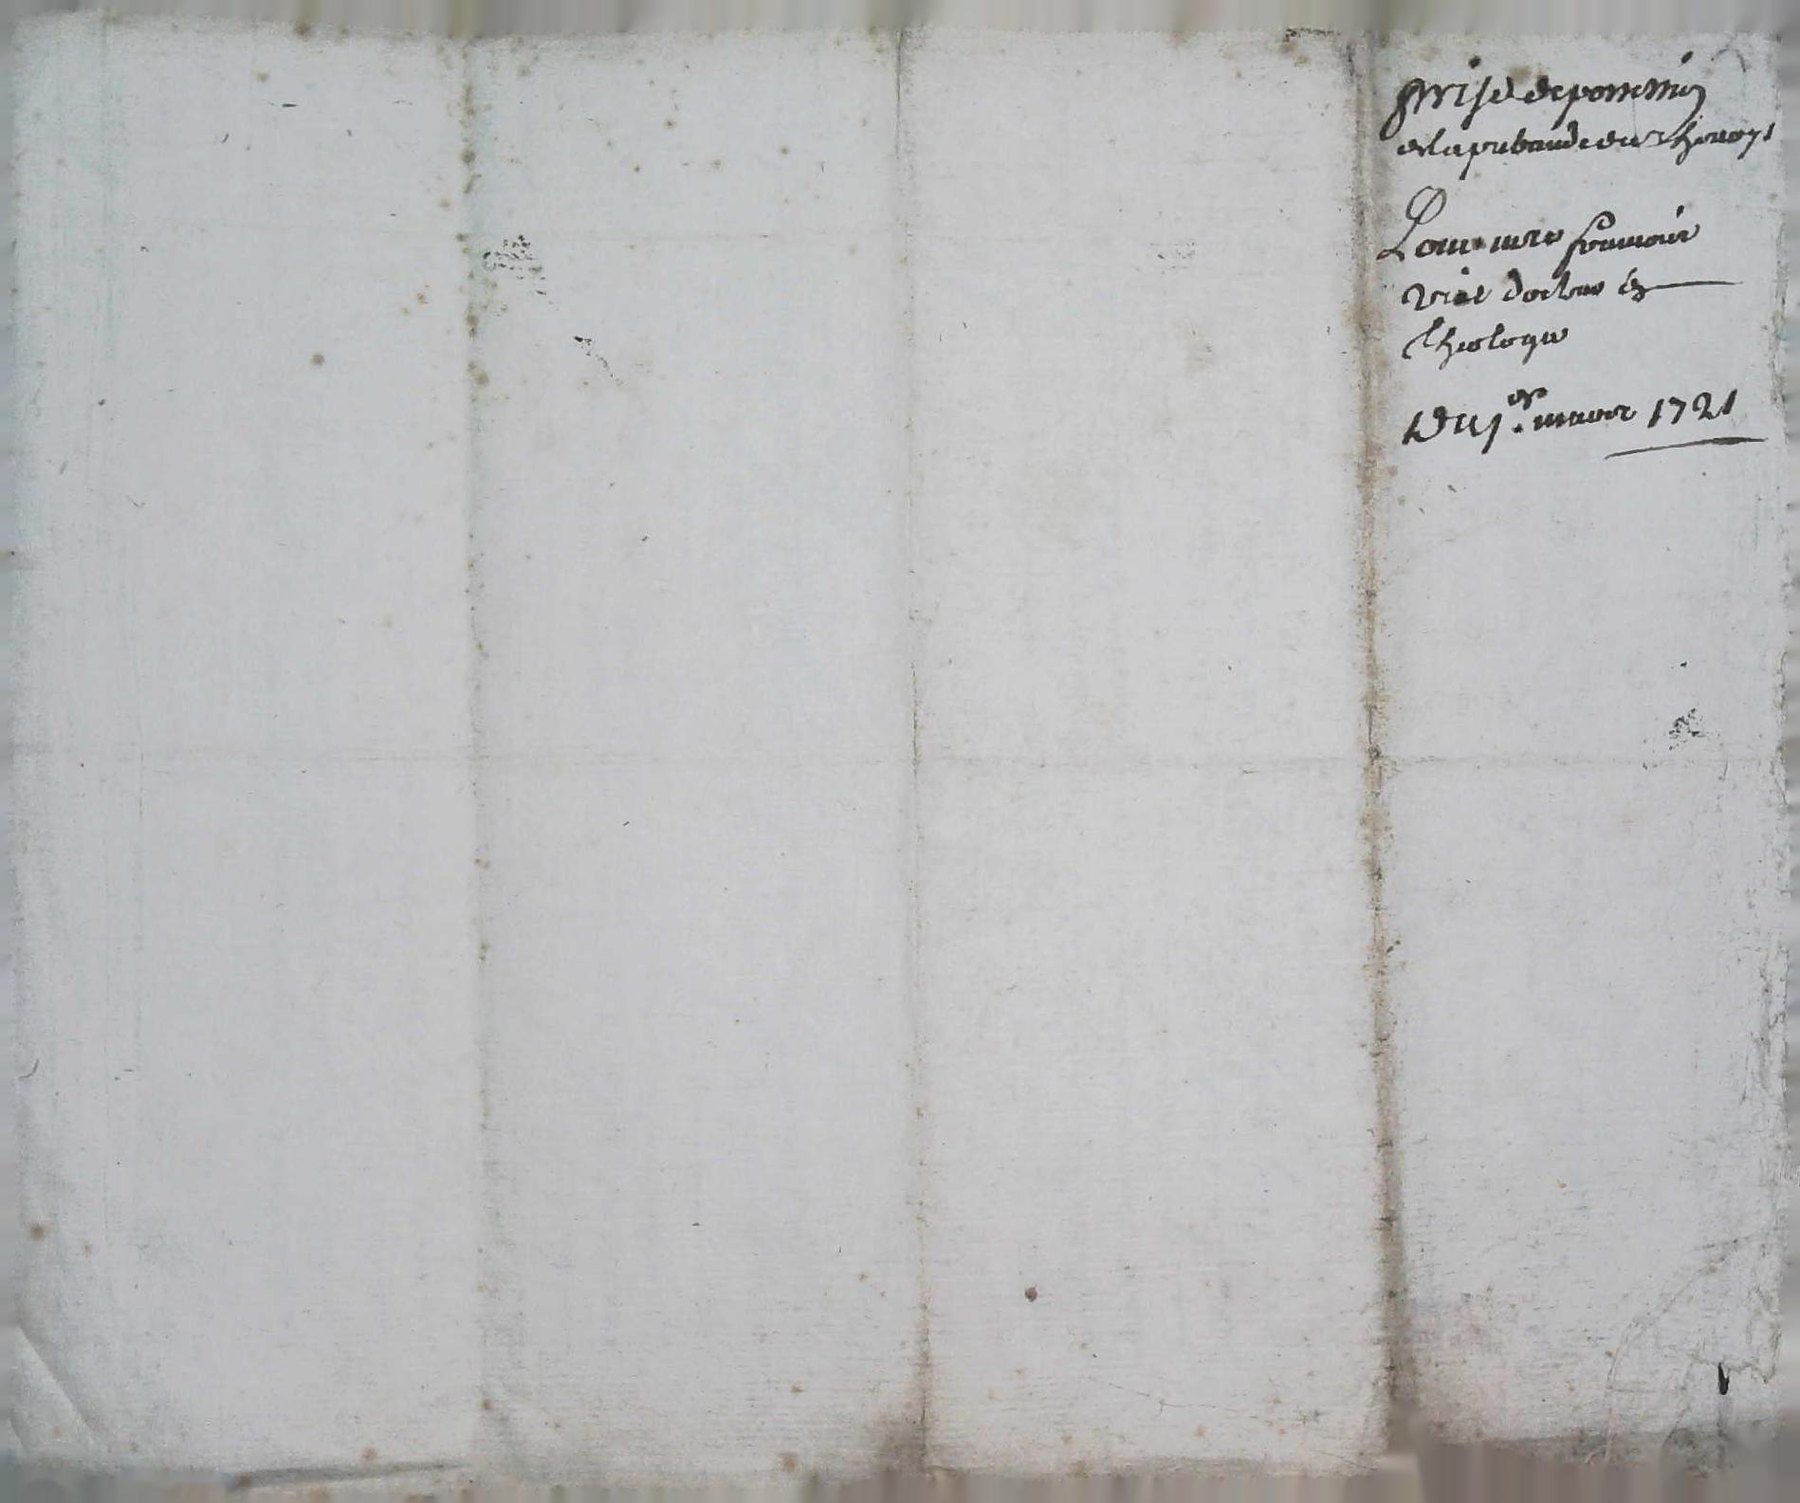 prise de possession
de la prebande de
Pour mre
Viel docteur en
theologie
Du 1er mars 1721